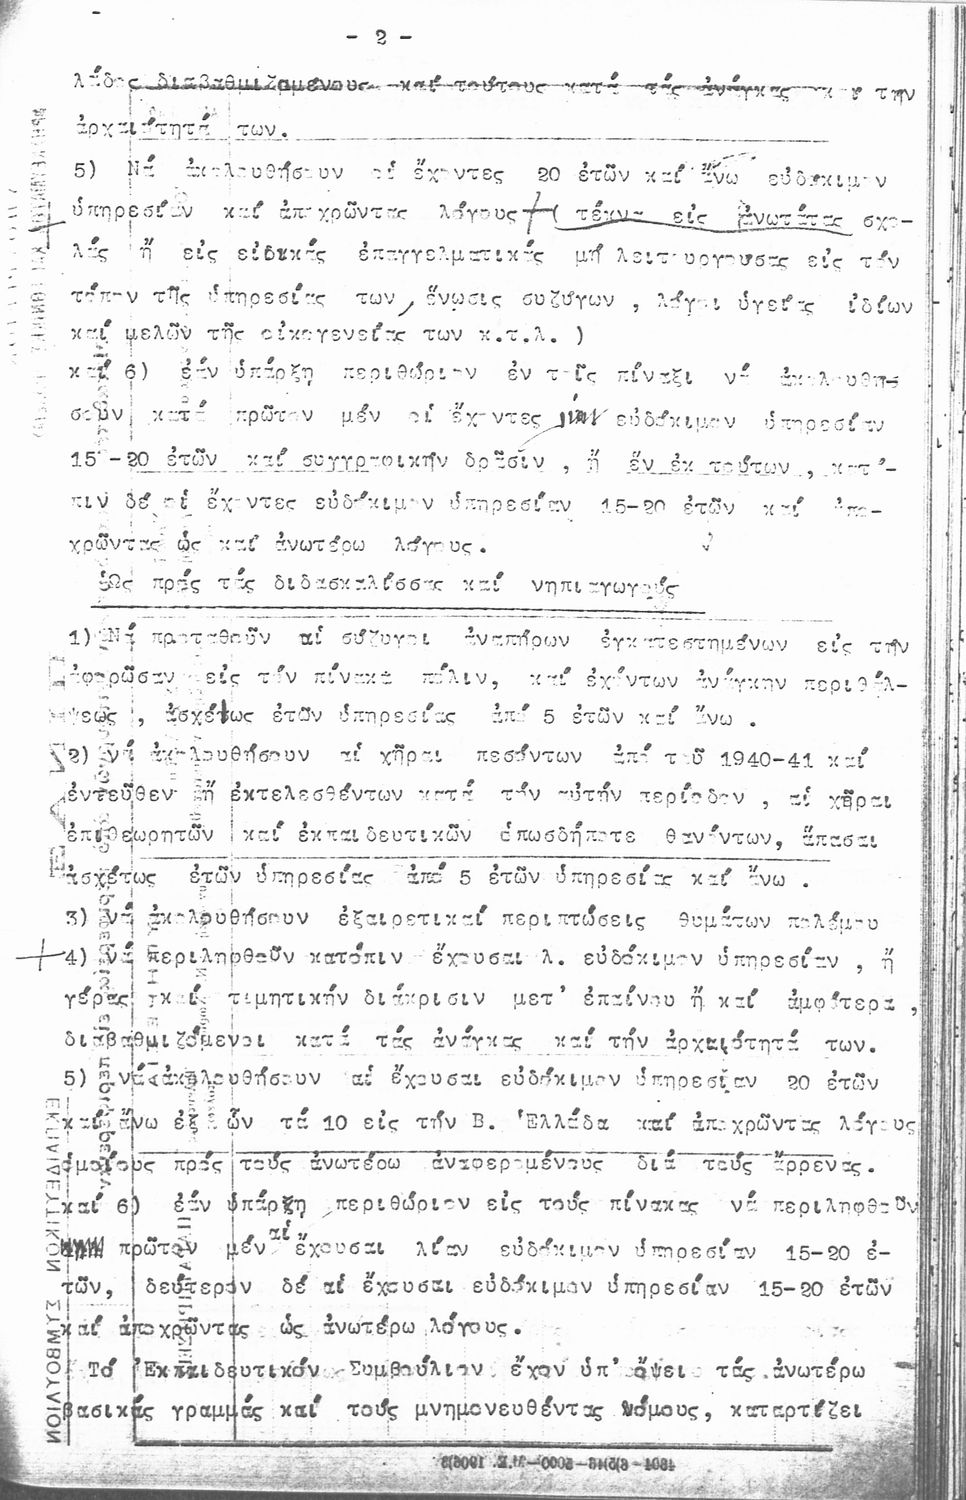 - 2 -
λάδος διαβαθμιζομένους καί τούτους κατά τάς ἀνάγκας καί τήν
ἀρχαιότητά των.
5) Νά ἀκολουθήσουν οἱ ἔχοντες 20 ἐτῶν καί ἄνω εὐδόκιμον
ὑπηρεσίαν καί ἀποχρῶντας λόγους ( τέκνα εἰς ἀνωτάτας σχο-
λάς ἤ εἰς εἰδικάς ἐπαγγελματικάς μή λειτουργούσας εἰς τόν
τόπον τῆς ὑπηρεσίας των, ἕνωσις συζύγων , λόγοι ὑγείας ἰδίων
καί μελῶν τῆς οἰκογενείας των κ.τ.λ. )
καί 6) ἐάν ὑπάρξη περιθώριον ἐν τοῖς πίναξι νά ἀκολουθή-
σουν κατά πρῶτον μέν οἱ ἔχοντες εὐδόκιμον ὑπηρεσίαν
15 -20 ἐτῶν καί συγγραφικήν δρᾶσιν , ἤ ἕν ἐκ τούτων , κατό-
πιν δέ οἱ ἔχοντες εὐδόκιμον ὑπηρεσίαν 15-20 ἐτῶν καί ἀπο-
χρῶντας ὡς καί ἀνωτέρω λόγους.
Ὡς πρός τάς διδασκαλίσσας καί νηπιαγωγούς
1) Νά προταθοῦν αἱ σύζυγοι ἀναπήρων ἐγκατεστημένων εἰς τήν
ἀφορῶσαν εἰς τόν πίνακα πόλιν, καί ἐχόντων ἀνάγκην περιθάλ-
ψεως , ἀσχέτως ἐτῶν ὑπηρεσίας ἀπό 5 ἐτῶν καί ἄνω .
2) νά ἀκολουθήσουν αἱ χῆραι πεσόντων ἀπό τοῦ 1940-41 καί
ἐντεῦθεν ἤ ἐκτελεσθέντων κατά τήν αὐτήν περίοδον , αἱ χῆραι
ἐπιθεωρητῶν καί ἐκπαιδευτικῶν ὁπωσδήποτε θανόντων, ἅπασαι
ἀσχέτως ἐτῶν ὑπηρεσίας ἀπό 5 ἐτῶν ὑπηρεσίας καί ἄνω .
3) νά ἀκολουθήσουν ἐξαιρετικαί περιπτώσεις θυμάτων πολέμου
4) νά περιληφθοῦν κατόπιν ἔχουσαι λ. εὐδόκιμον ὑπηρεσίαν , ἤ
γέρας καί τιμητικήν διάκρισιν μετ' ἐπαίνου ἤ καί ἀμφότερα ,
διαβαθμιζόμενοι κατά τάς ἀνάγκας καί τήν ἀρχαιότητά των.
5) νά ἀκολουθήσουν αἱ ἔχουσαι εὐδόκιμον ὑπηρεσίαν 20 ἐτῶν
καί ἄνω ἐξ ὧν τά 10 εἰς τήν Β. Ἑλλάδα καί ἀποχρῶντας λόγους
ὁμοίους πρός τούς ἀνωτέρω ἀναφερομένους διά τούς ἄρρενας.
καί 6) ἐάν ὑπάρξη περιθώριον εἰς τούς πίνακας νά περιληφθοῦν
πρῶτον μέν αἱ ἔχουσαι λίαν εὐδόκιμον ὑπηρεσίαν 15-20 ἐ-
τῶν, δεύτερον δέ αἱ ἔχουσαι εὐδόκιμον ὑπηρεσίαν 15-20 ἐτῶν
καί ἀποχρῶντας ὡς ἀνωτέρω λόγους.
Τό Ἐκπαιδευτικόν Συμβούλιον ἔχον ὑπ' ὄψει τάς ἀνωτέρω
βασικάς γραμμάς καί τούς μνημονευθέντας νόμους, καταρτίζει
ΕΚΠΑΙΔΕΥΤΙΚΟΝ ΣΥΜΒΟΥΛΙΟΝ